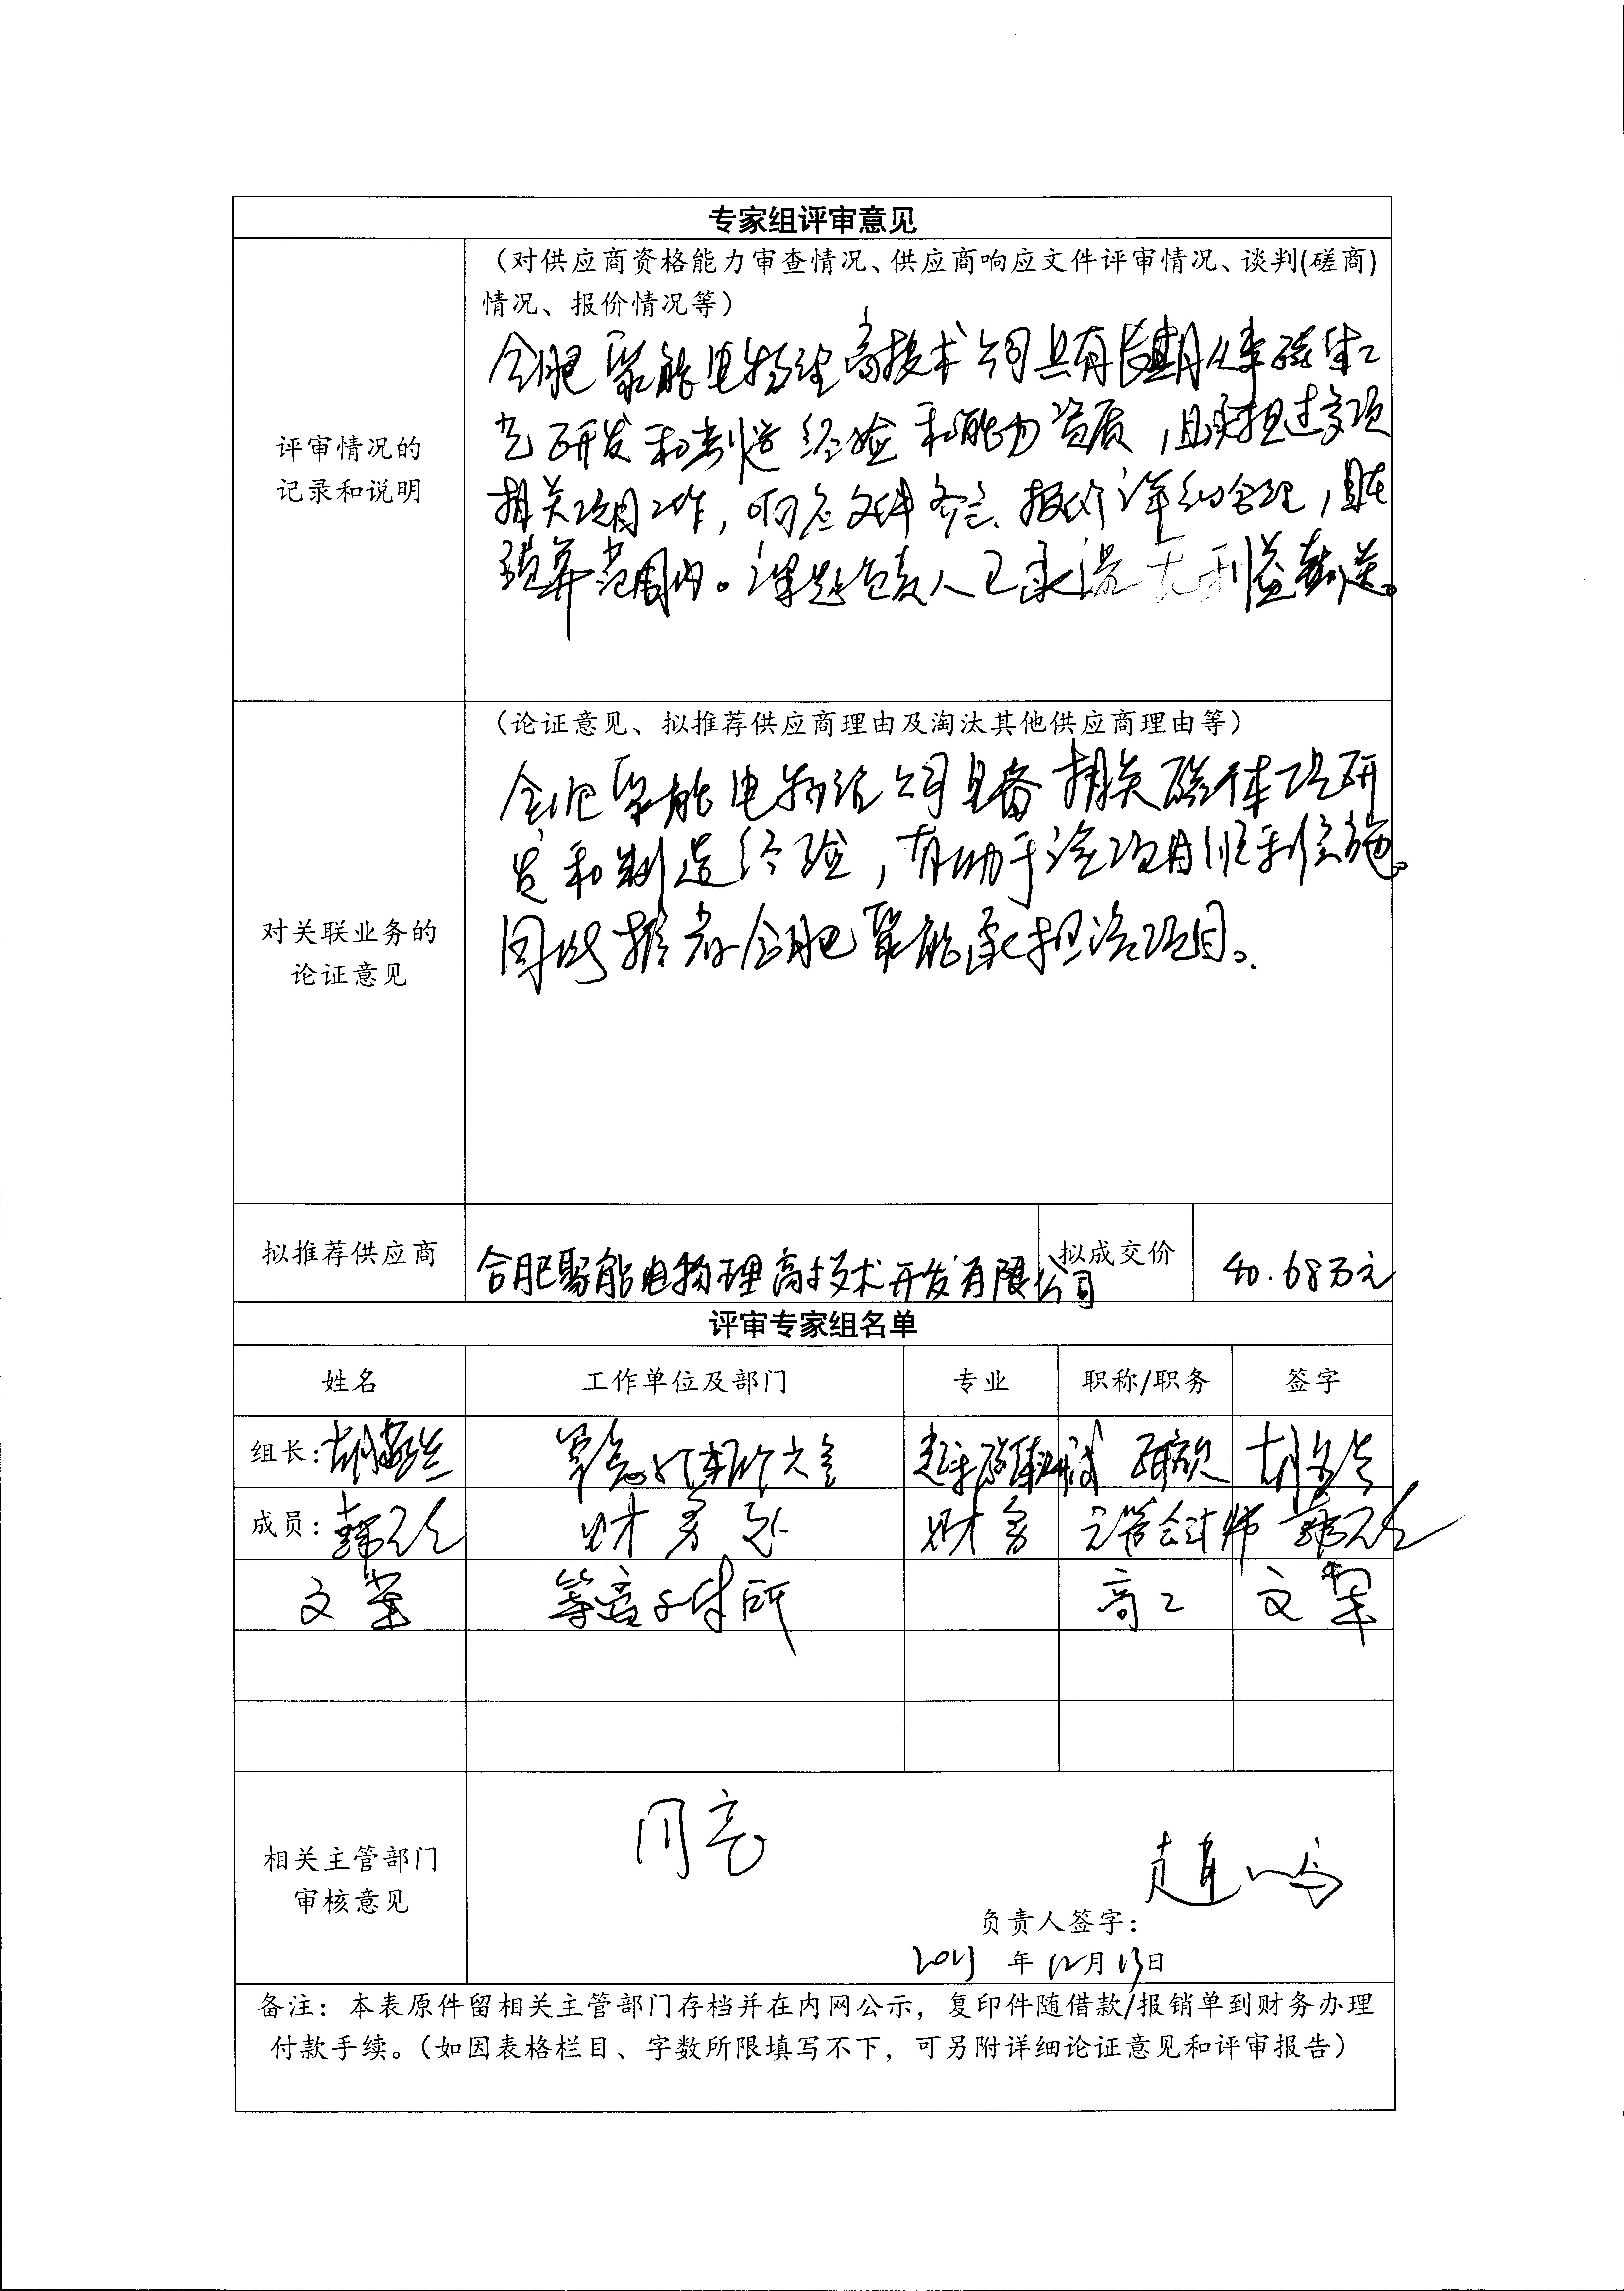 专家组评审意见
评审情况的
记录和说明
（对供应商资格能力审查情况、供应商响应文件评审情况、谈判(磋商)
情况、报价情况等）
合肥聚能电物理高技术公司具有长期从事磁体工
艺研发和制造经验和能力资质，且承担过多项
相关项目工作，响应文件齐全、报价详细合理，且在
预算范围内。课题负责人已承诺无利益输送。
对关联业务的
论证意见
（论证意见、拟推荐供应商理由及淘汰其他供应商理由等）
合肥聚能电物理公司具备相关磁体工艺研
发和制造经验，有助于该项目顺利实施。
因此推荐合肥聚能承担该项目。
拟推荐供应商
合肥聚能电物理高技术开发有限公司
拟成交价
40.68万元
评审专家组名单
姓名 工作单位及部门 专业 职称/职务 签字
组长：胡 
成员：韩 财务处 财务 会计师 韩
文军 等离子体所 高工 文军
相关主管部门
审核意见
同意
负责人签字：
年12月13日
备注：本表原件留相关主管部门存档并在内网公示，复印件随借款/报销单到财务办理
付款手续。（如因表格栏目、字数所限填写不下，可另附详细论证意见和评审报告）